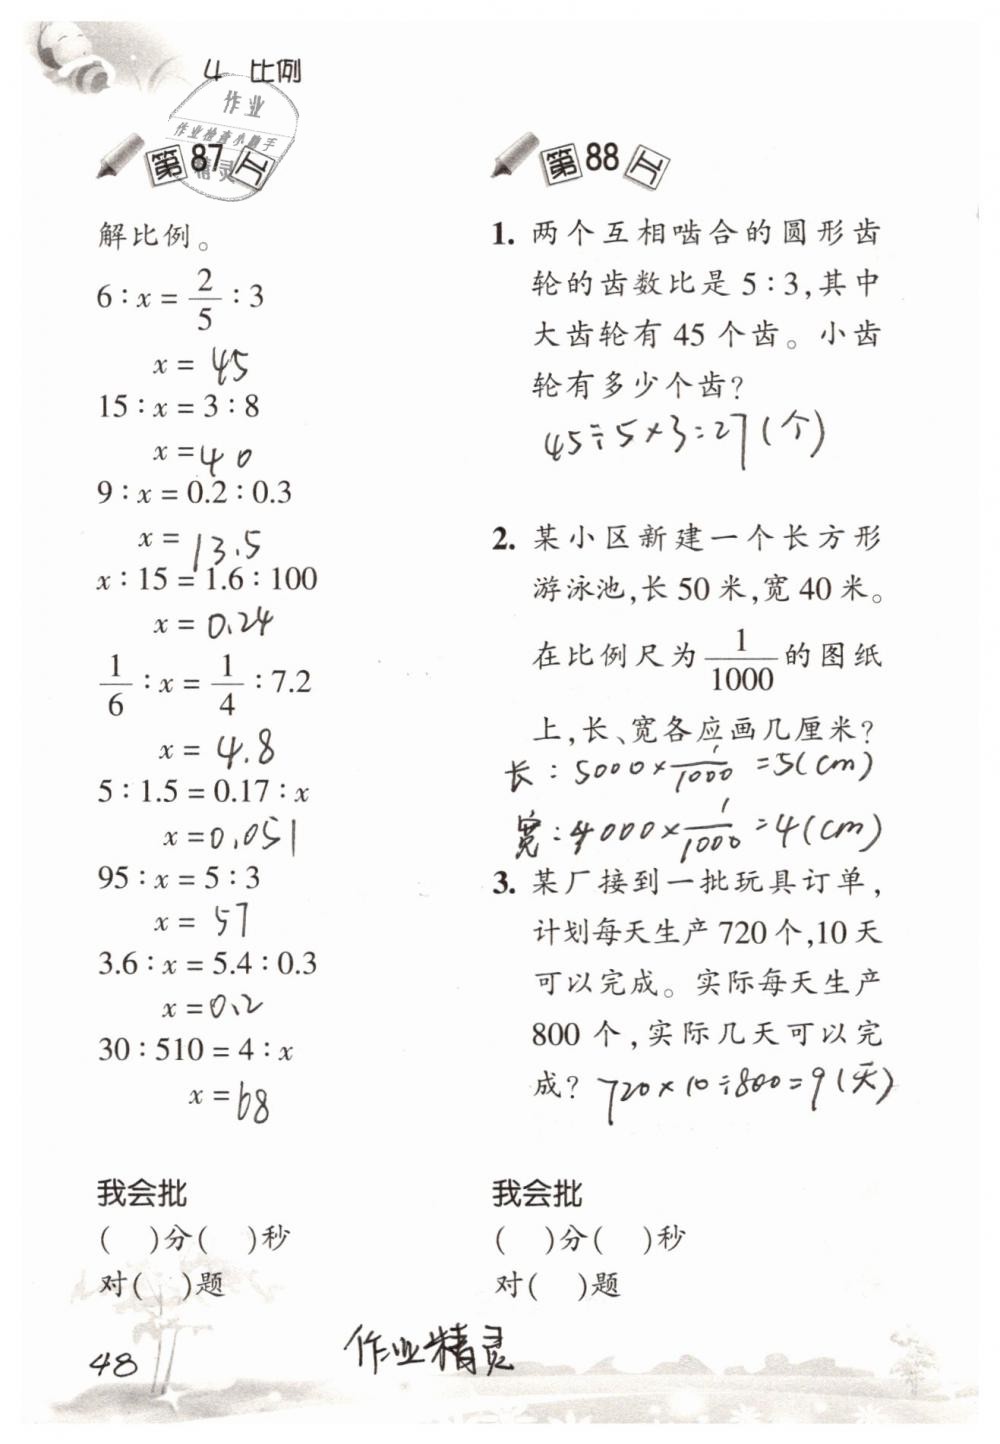 4 比例
作业
作业检查小助手
精灵
第87天
解比例。
6∶x=2/5∶3
x=45
15∶x=3∶8
x=40
9∶x=0.2∶0.3
x=13.5
x∶15=1.6∶100
x=0.24
1/6∶x=1/4∶7.2
x=4.8
5∶1.5=0.17∶x
x=0.051
95∶x=5∶3
x=57
3.6∶x=5.4∶0.3
x=0.2
30∶510=4∶x
x=68
我会批
( )分( )秒
对( )题
第88天
1. 两个互相啮合的圆形齿
轮的齿数比是5∶3,其中
大齿轮有45个齿。小齿
轮有多少个齿?
45÷5×3=27(个)
2. 某小区新建一个长方形
游泳池,长50米,宽40米。
在比例尺为1/1000的图纸
上,长、宽各应画几厘米?
长:5000×1/1000=5(cm)
宽:4000×1/1000=4(cm)
3. 某厂接到一批玩具订单,
计划每天生产720个,10天
可以完成。实际每天生产
800个,实际几天可以完
成? 720×10÷800=9(天)
我会批
( )分( )秒
对( )题
作业精灵
48